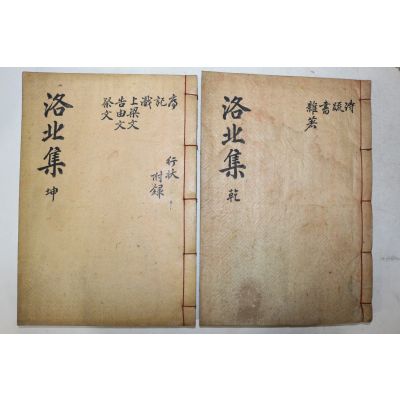 詩
疏
書
雜著
洛北集 乾
序
記
箴
上梁文
告由文
祭文
行狀
附録
洛北集 坤